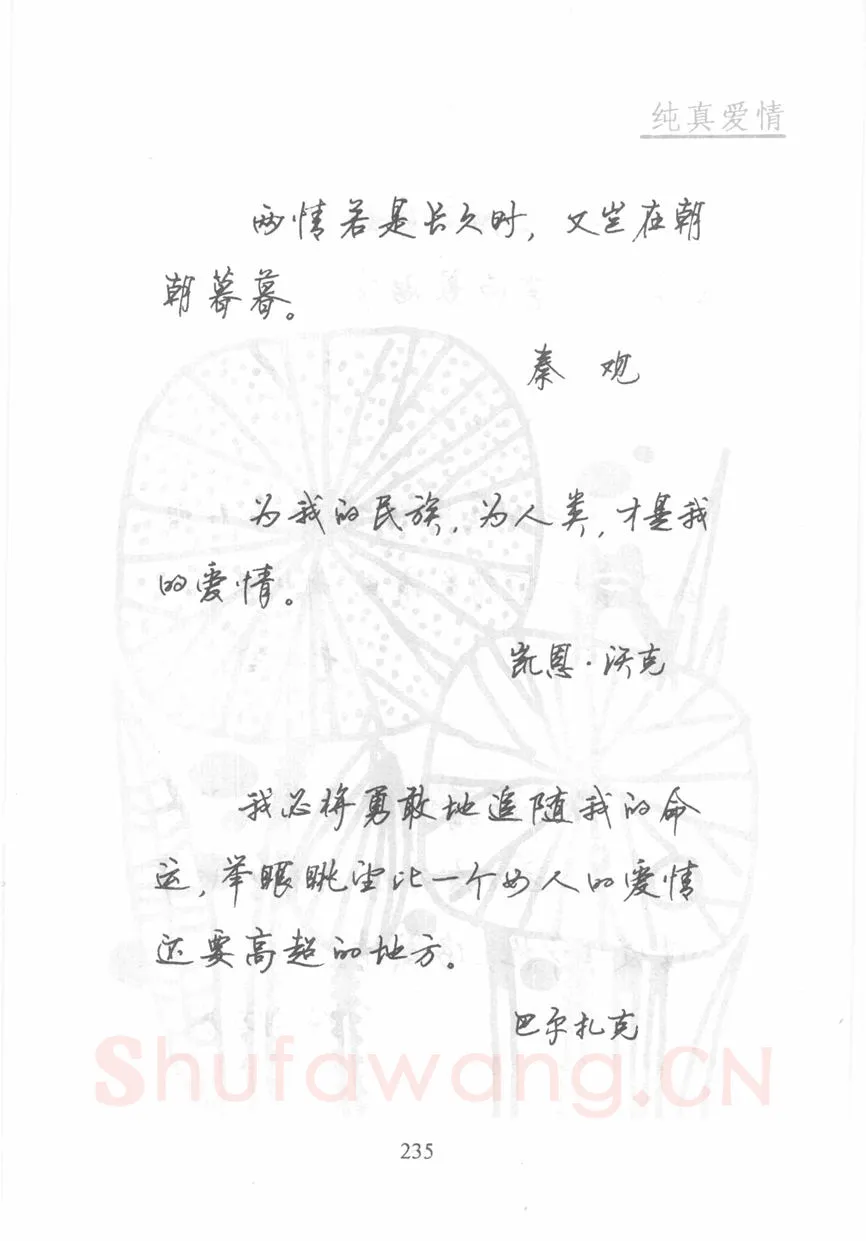 纯真爱情
两情若是长久时，又岂在朝
朝暮暮。
秦 观
为我的民族，为人类，才是我
的爱情。
凯恩·沃克
我必将勇敢地追随我的命
运，举眼眺望比一个女人的爱情
还要高超的地方。
巴尔扎克
Shufawang.CN
235